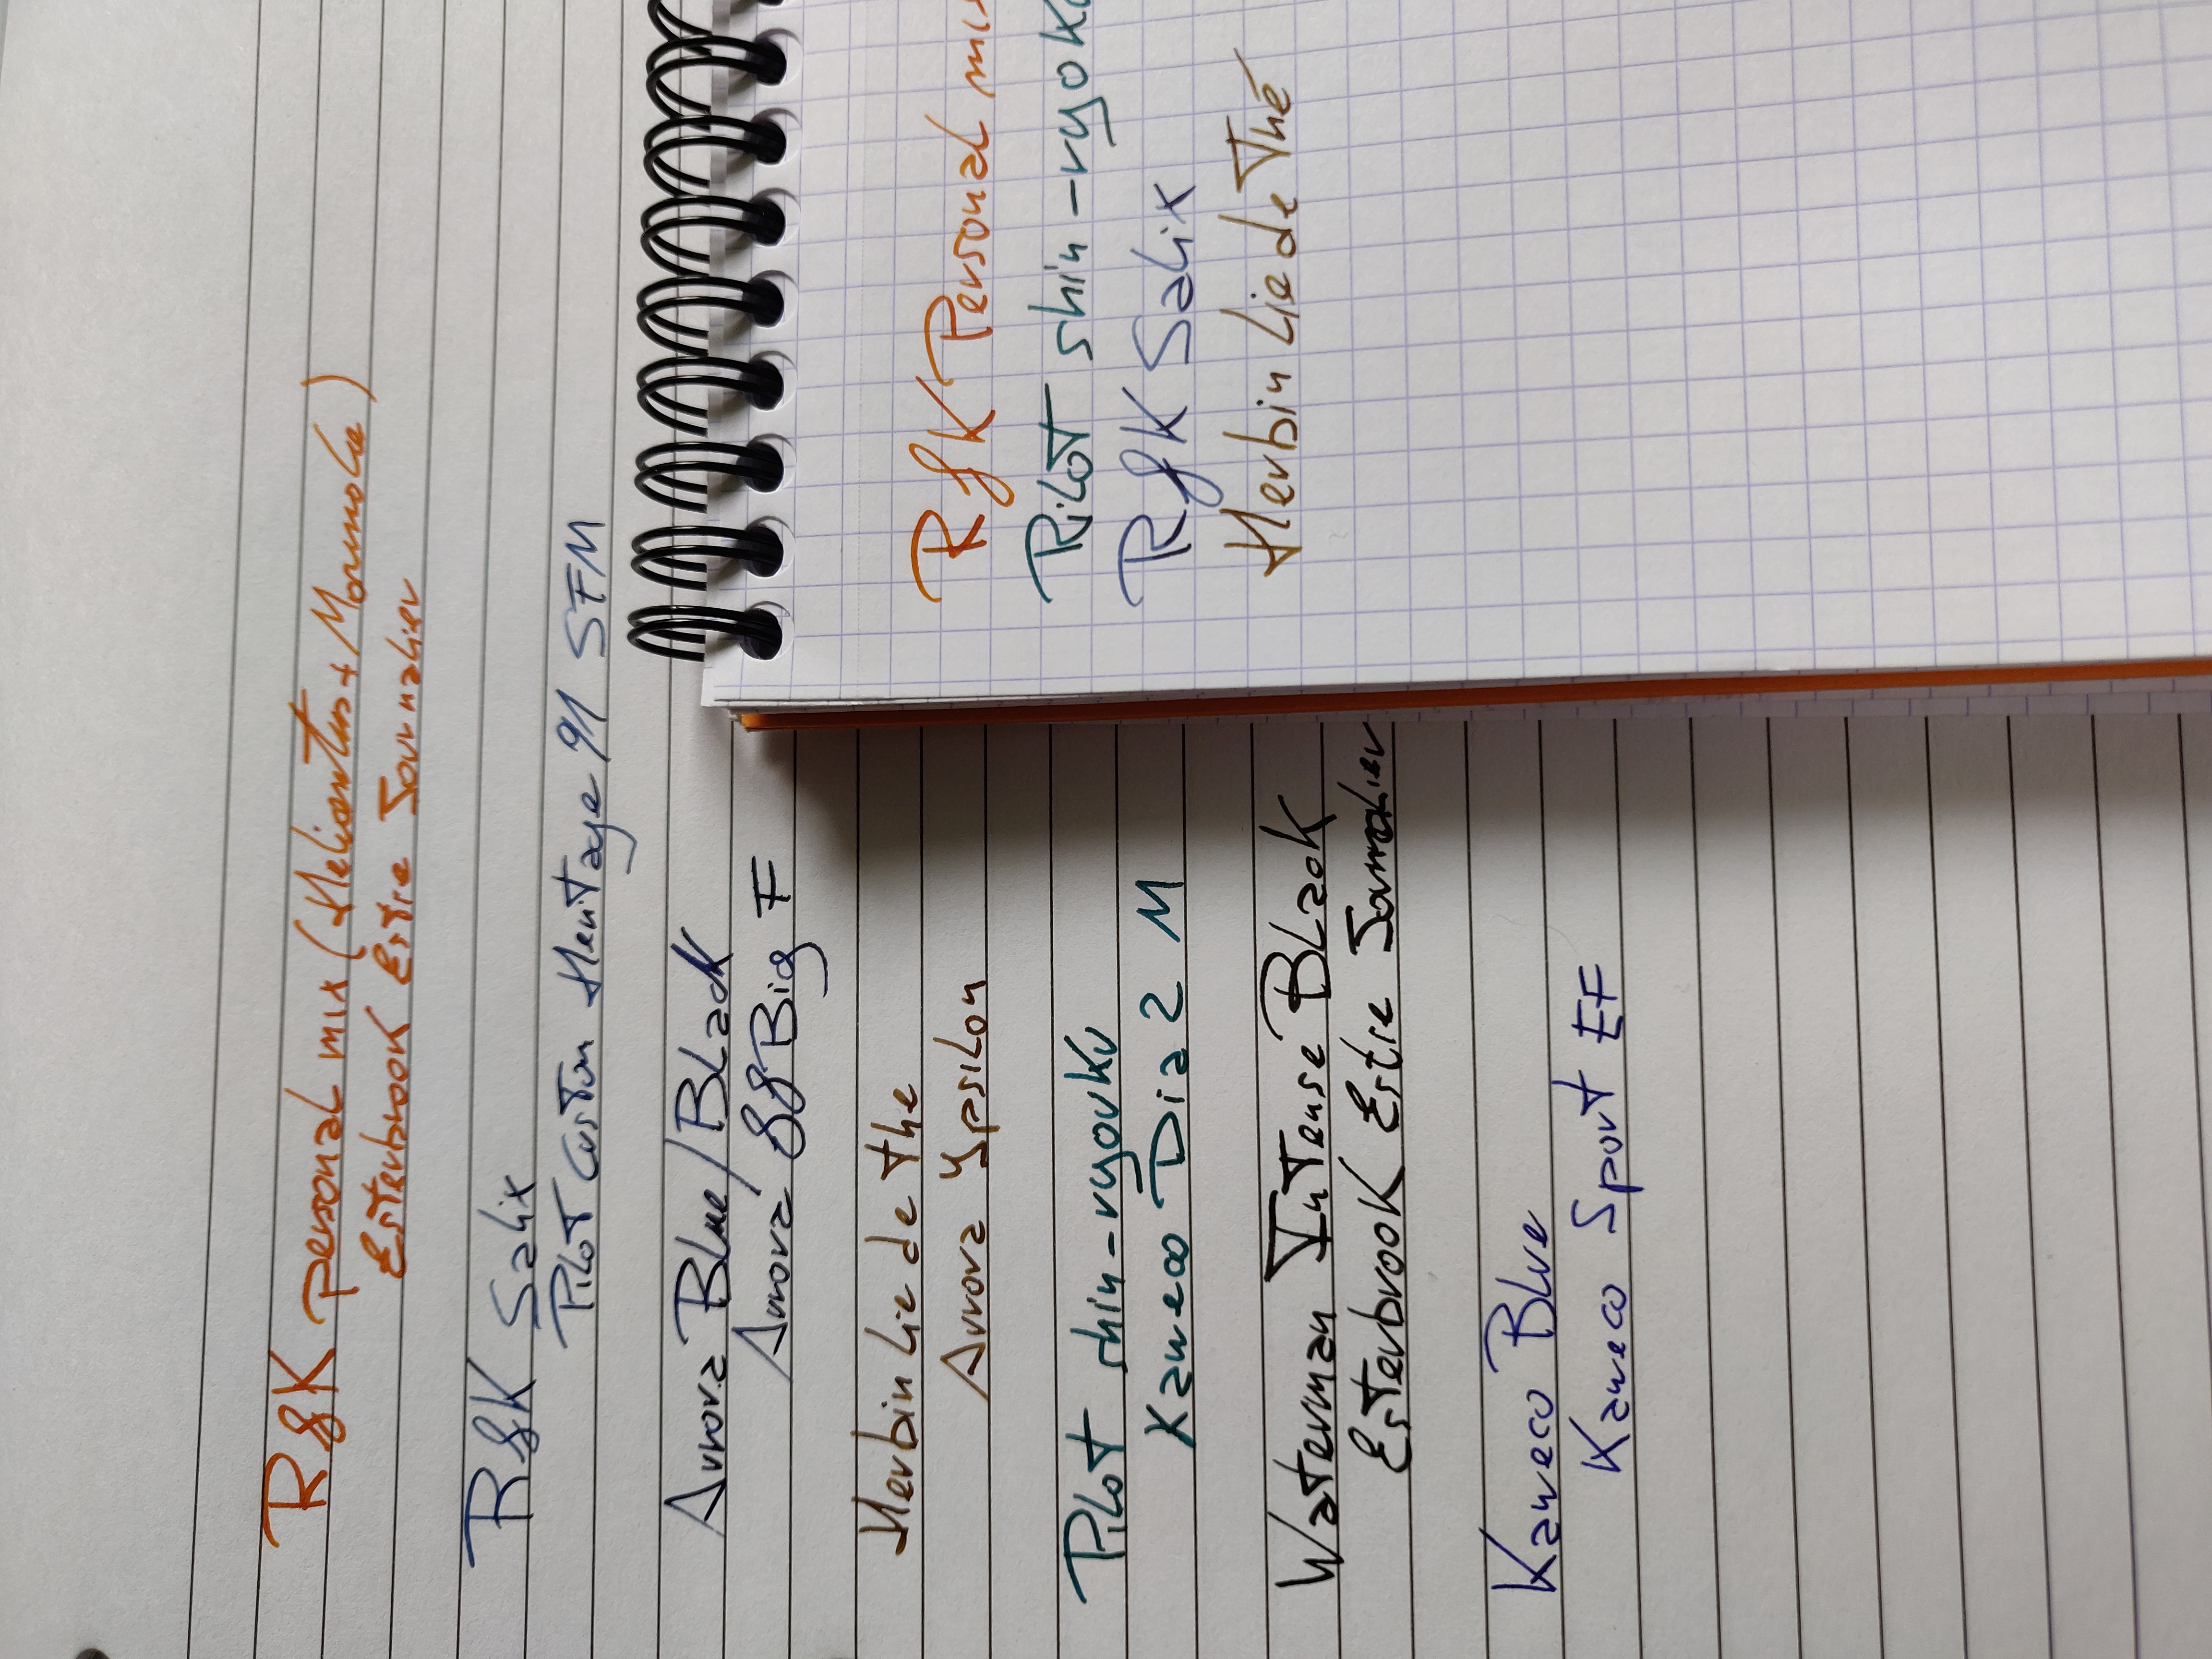 R&K Personal mix (Helianthus + Marmole)
Esterbrook Estie Journalier
R&K Salix
Pilot Custom Heritage 91 SFM
Aurora Blue/Black
Aurora 88 Big F
Herbin Lie de the
Aurora Ypsilon
Pilot shin-ryoku
Kaweco Dia 2 M
Waterman Intense Black
Esterbrook Estie Journalier
Kaweco Blue
Kaweco Sport EF
R&K Personal mix
Pilot shin-ryoku
R&K Salix
Herbin Lie de Thé